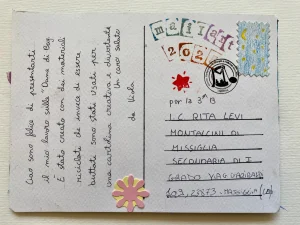 Ciao sono felice di presentarti
il mio lavoro sulla "Dama di Bay
È stato creato con dei materiali
riciclati che invece di essere
buttate sono state usati per
una cartolina creativa e divertente
Un caro saluto
da Viola
mail art
202
per la 3ª B
I.C. RITA LEVI
MONTALCINI DI
MISSIGLIA
SECONDARIA DI I
GRADO VIAG. GARIBALDI
103, 23873, MISSAGLIA (LC)